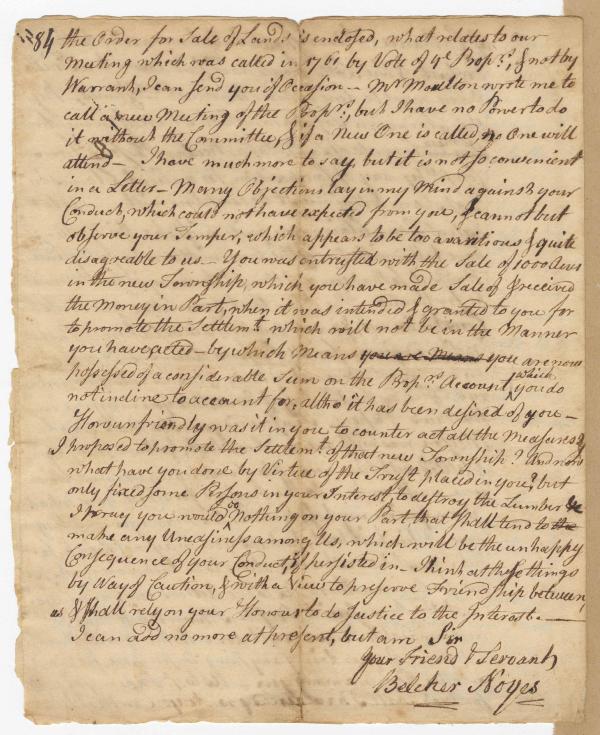 84 the Order for Sale of Lands is enclosed, what relates to our
Meeting which was called in 1761 by Vote of ye Prop.rs, & not by
Warrant, I can send you if Occasion -- Mr Moulton wrote me to
call a new Meeting of the Prop.rs, but I have no Power to do
it without the Committee, & if a New One is called, no One will
attend – I have much more to say, but it is not so convenient
in a Letter – Many Objections lay in my Mind against your
Conduct, which could not have expected from you, & cannot but
observe your Temper, which appears to be too avaritious & quite
disagreable to us – You was entrusted with the Sale of 1000 Acres
in the new Township, which you have made Sale of & received
the Money in Part, when it was intended & granted to you for
to promote the Settlemt. which will not be in the Manner
you have acted – by which Means you are Means you are now
possessed of a considerable Sum on the Prop.rs Account, which you do
not incline to account for, altho' it has been desired of you –
How unfriendly was it in you to counter act all the Measures
I proposed to promote the Settlemt. of that new Township? And now
what have you done by Virtue of the Trust placed in you? but
only fixed some Persons in your Interest, to destroy the Lumber &c
I pray you would do Nothing on your Part that shall tend to the
make any Uneasiness among Us, which will be the unhappy
Consequence of your Conduct, if persisted in – I hint at these things
by Way of Caution, & with a View to preserve Friendship between
us & shall rely on your Honour to do Justice to the Interest. –
I can add no more at present, but am Sir
Your Friend & Servant
Belcher Noyes